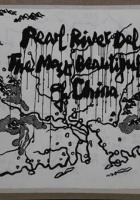 Pearl River Del
The Most Beautiful
of China